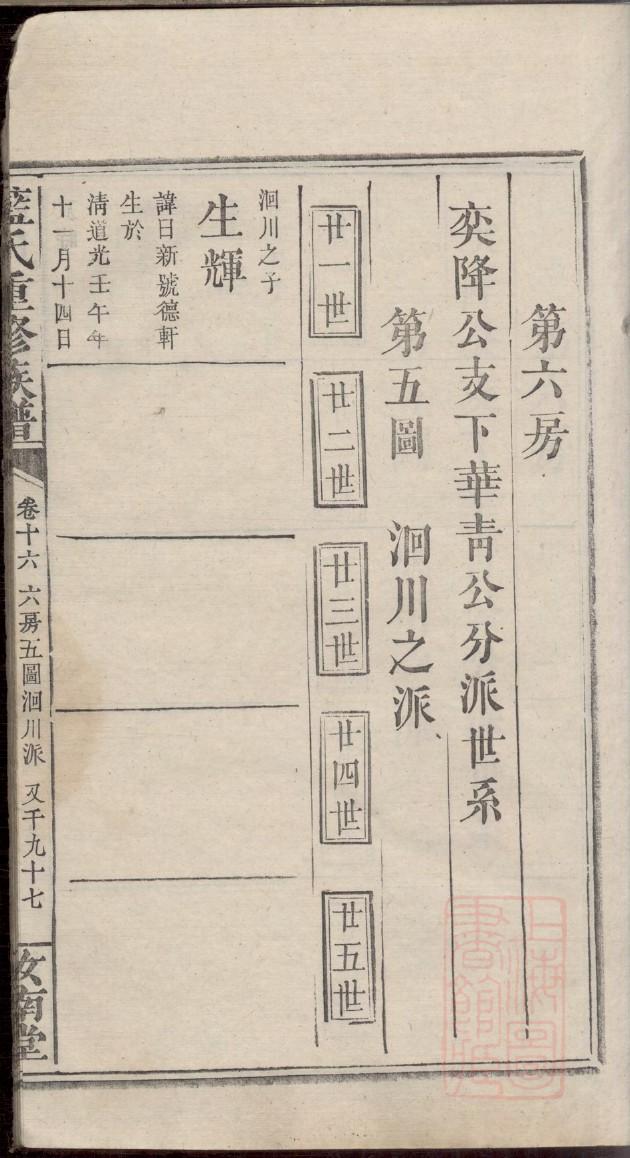 第六房
奕降公支下華青公分派世系
第五圖 洄川之派
廿一世
廿二世
廿三世
廿四世
廿五世
洄川之子
生輝
諱日新號德軒
生於
清道光壬午年
十一月十四日
藍氏重修族譜
卷十六 六房五圖洄川派 又千九十七
汝南堂
上海圖
書館藏